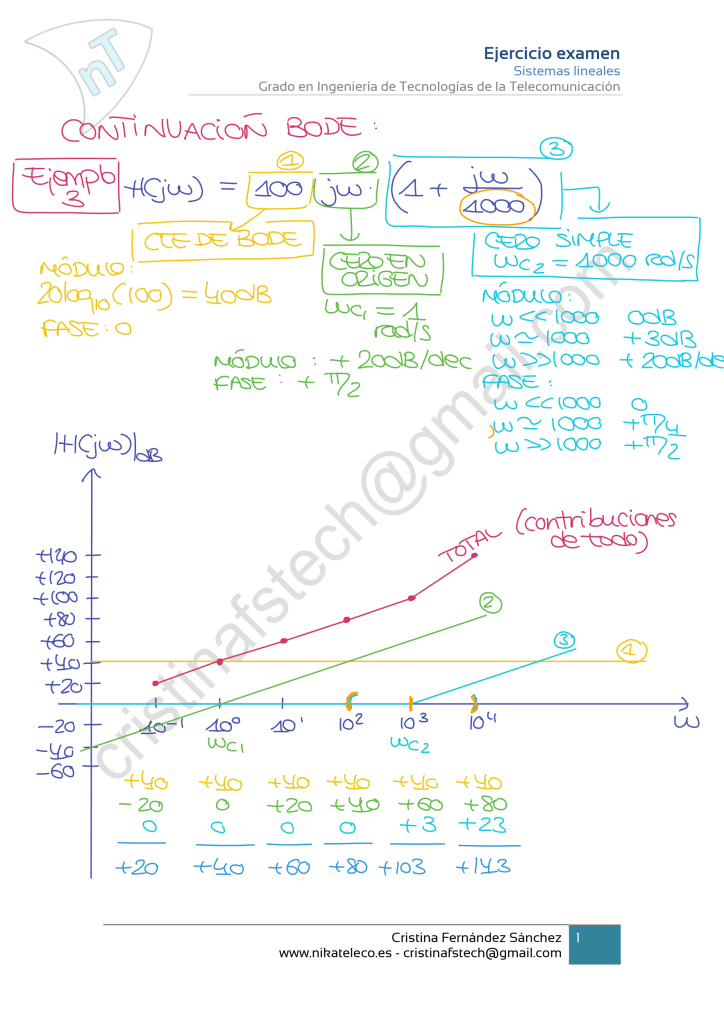 nT
Ejercicio examen
Sistemas lineales
Grado en Ingeniería de Tecnologías de la Telecomunicación
CONTINUACIÓN BODE:
① ② ③
Ejemplo 3 H(jω) = 100 jω· (1 + jω/1000)
CTE DE BODE
MÓDULO:
20log₁₀(100) = 40dB
FASE: 0
CERO EN
ORIGEN
ωc₁ = 1
rad/s
MÓDULO: + 20dB/dec
FASE: + π/2
CERO SIMPLE
ωc₂ = 1000 rad/s
MÓDULO:
ω << 1000 0dB
ω ≃ 1000 + 3dB
ω >> 1000 + 20dB/de
FASE:
ω << 1000 0
ω ≃ 1000 + π/4
ω >> 1000 + π/2
|H(jω)|dB
TOTAL (contribuciones
de todo)
+140
+120
+100
+80
+60
+40
+20
-20
-40
-60
②
③
①
10⁻¹ 10⁰ 10¹ 10² 10³ 10⁴ ω
ωc₁ ωc₂
+40 +40 +40 +40 +40 +40
-20 0 +20 +40 +60 +80
0 0 0 0 +3 +23
+20 +40 +60 +80 +103 +143
cristinafstech@gmail.com
Cristina Fernández Sánchez
www.nikateleco.es - cristinafstech@gmail.com
1